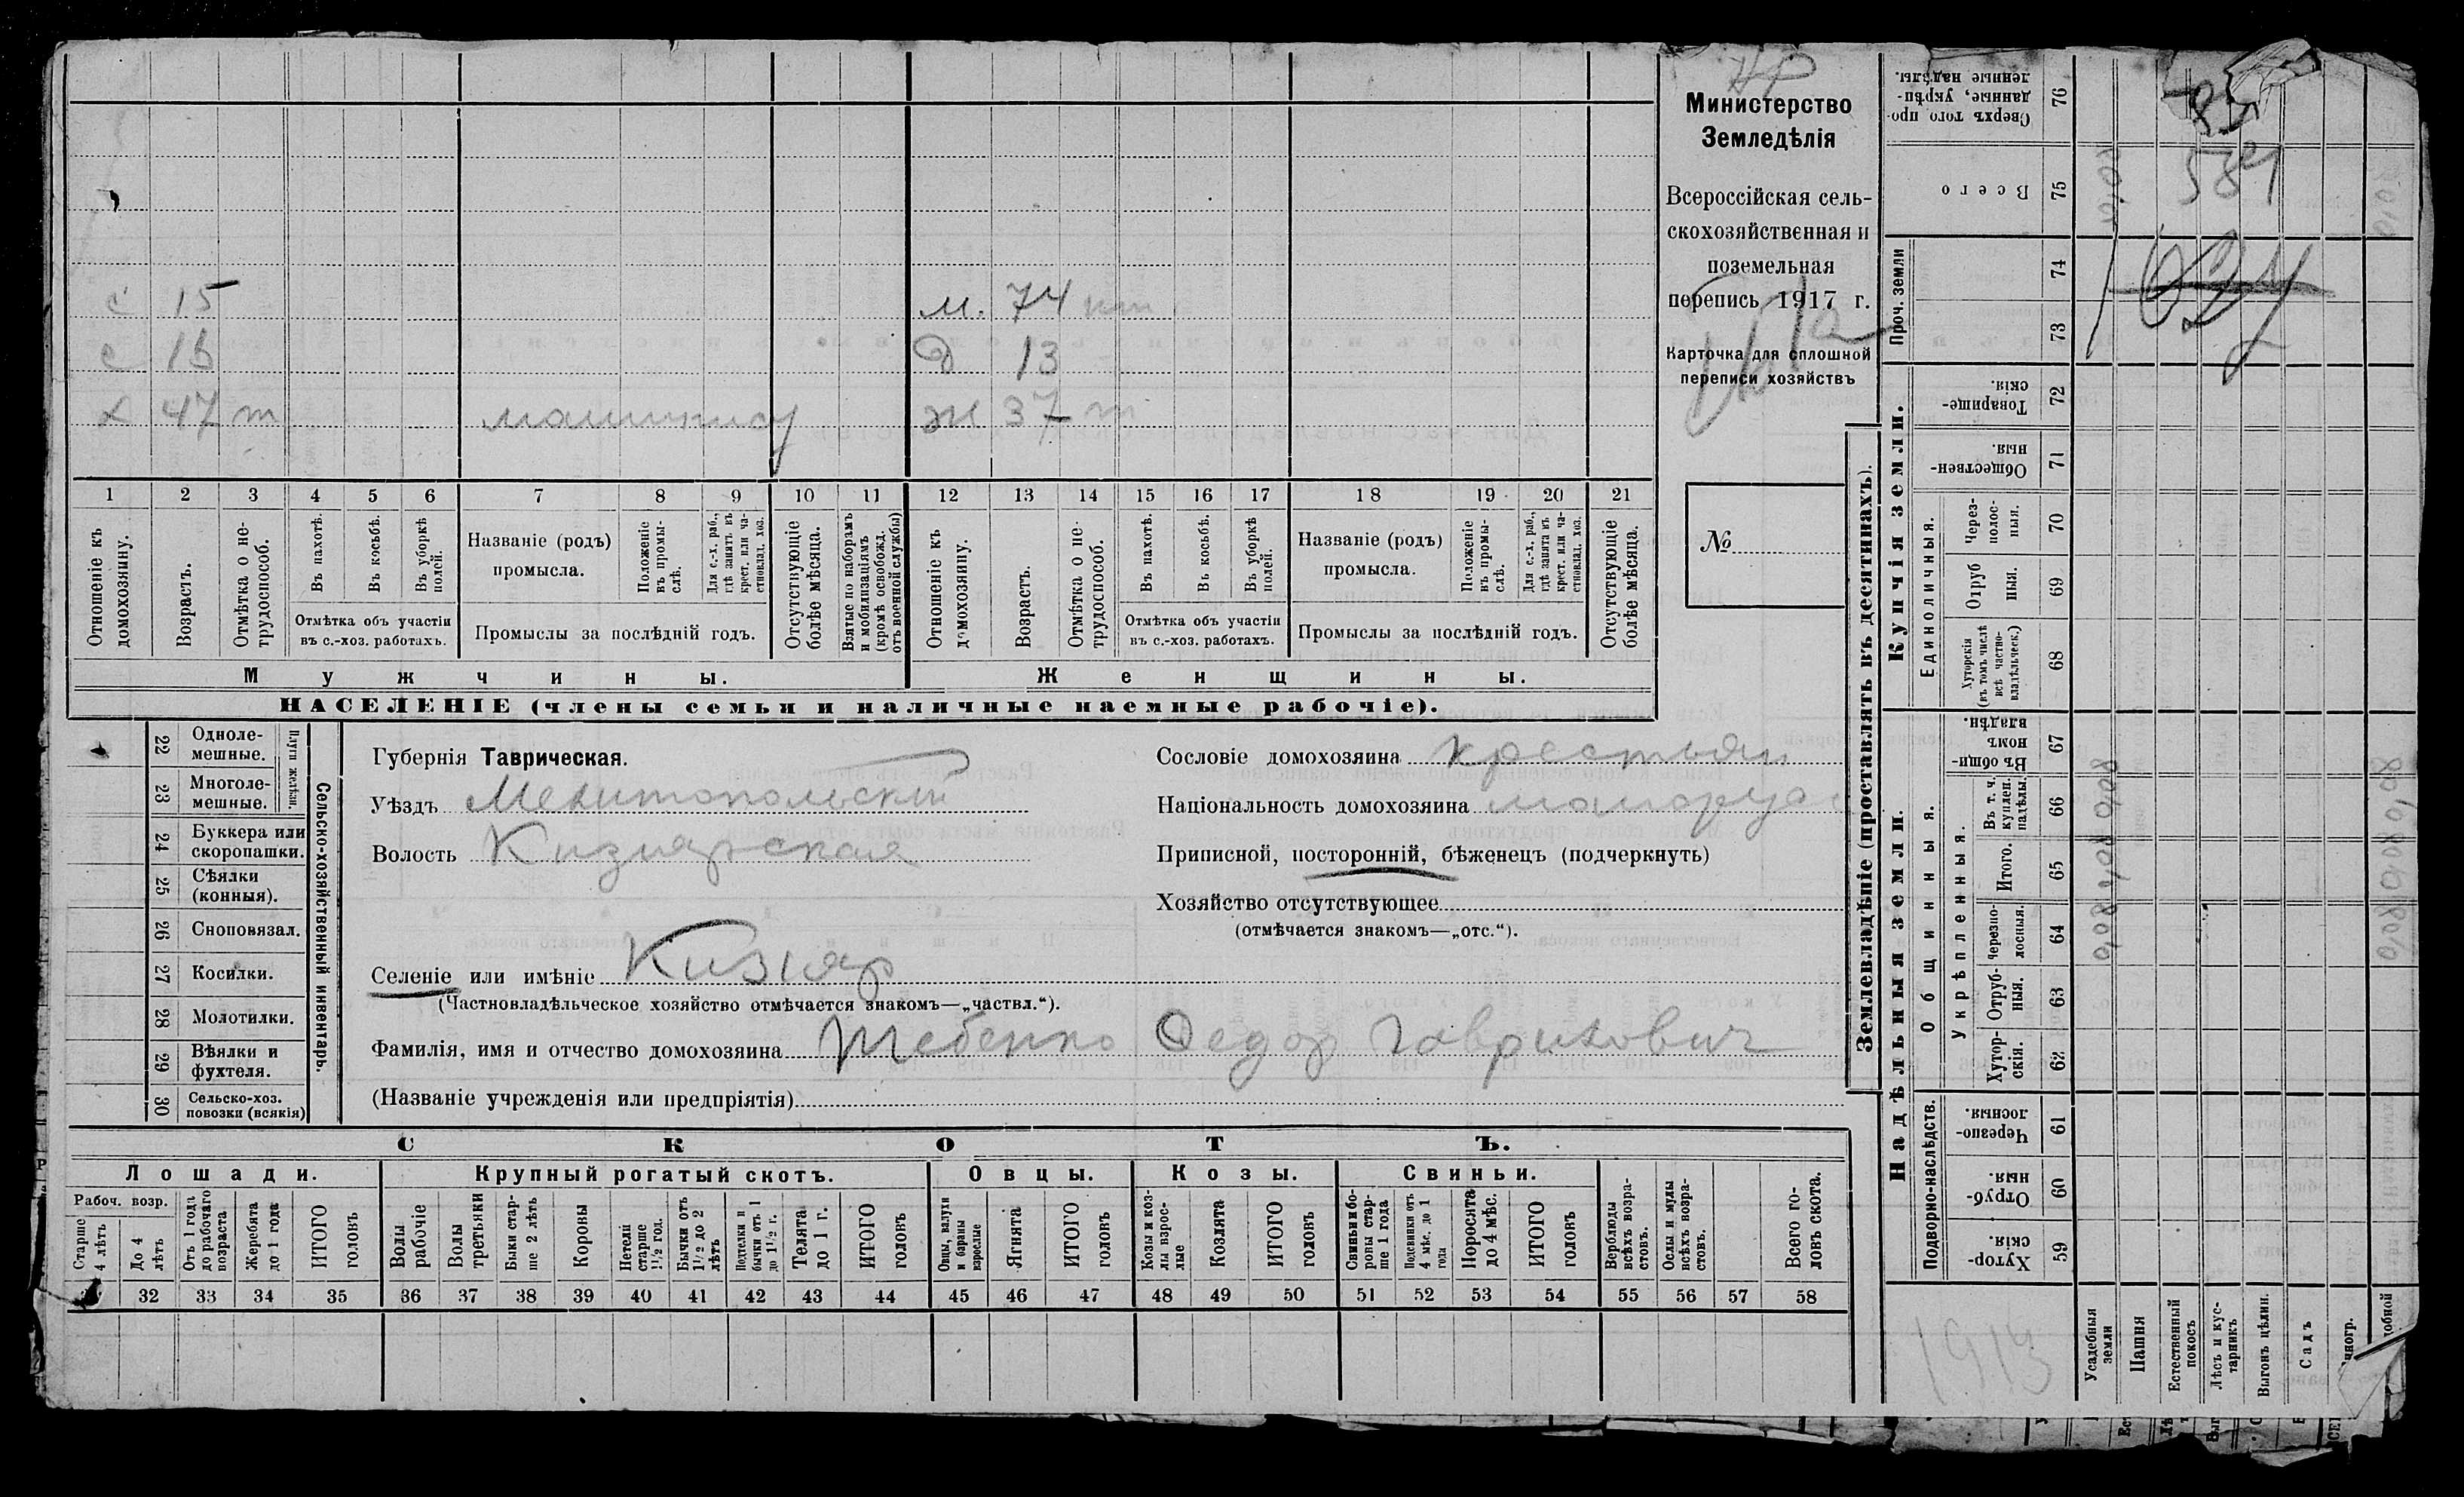 Министерство
Земледѣлія
Всероссійская сель-
скохозяйственная и
поземельная
перепись 1917 г.
Карточка для сплошной
переписи хозяйствъ
№
с 15 м. 74
с 13 д 13
х 47 т машинист ж 37 т
1 2 3 4 5 6 7 8 9 10 11 12 13 14 15 16 17 18 19 20 21
Отношеніе къ домохозяину.
Возрастъ.
Отмѣтка о не-трудоспособ.
Въ пахотѣ.
Въ косьбѣ.
Въ уборкѣ полей.
Отмѣтка объ участіи
въ с.-хоз. работахъ.
Названіе (родъ)
промысла.
Положеніе въ промы-слѣ.
Для с.-х. раб., гдѣ занятъ въ крест. или ча-стновлад. хоз.
Промыслы за послѣдній годъ.
Отсутствующіе болѣе мѣсяца.
Взятые по наборамъ и мобилизаціямъ (кромѣ освобожд. отъ военной службы)
Отношеніе къ домохозяину.
Возрастъ.
Отмѣтка о не-трудоспособ.
Въ пахотѣ.
Въ косьбѣ.
Въ уборкѣ полей.
Отмѣтка объ участіи
въ с.-хоз. работахъ.
Названіе (родъ)
промысла.
Положеніе въ промы-слѣ.
Для с.-х. раб., гдѣ занята въ крест. или ча-стновлад. хоз.
Промыслы за послѣдній годъ.
Отсутствующіе болѣе мѣсяца.
Мужчины. Женщины.
НАСЕЛЕНІЕ (члены семьи и наличные наемные рабочіе).
22 Однолемешные.
23 Многолемешные.
Плуги желѣзн.
24 Буккера или скоропашки.
25 Сѣялки (конныя).
26 Сноповязал.
27 Косилки.
28 Молотилки.
29 Вѣялки и фухтеля.
30 Сельско-хоз. повозки (всякія)
Сельско-хозяйственный инвентарь.
Губернія Таврическая.
Уѣздъ Мелитопольский
Волость Кизиярская
Селеніе или имѣніе Кизияр
(Частновладѣльческое хозяйство отмѣчается знакомъ—„частвл.“).
Фамилія, имя и отчество домохозяина Шебенко Федор Гаврилович
(Названіе учрежденія или предпріятія)
Сословіе домохозяина крестьян
Національность домохозяина малорус
Приписной, посторонній, бѣженецъ (подчеркнуть)
Хозяйство отсутствующее
(отмѣчается знакомъ—„отс.“).
СКОТЪ.
Лошади. Крупный рогатый скотъ. Овцы. Козы. Свиньи.
Рабоч. возр.
Старше 4 лѣтъ
До 4 лѣтъ
Отъ 1 года до рабочаго возраста
Жеребята до 1 года
ИТОГО головъ
Волы рабочіе
Волы третьяки
Быки старше 2 лѣтъ
Коровы
Нетели старше 1½ год.
Бычки отъ 1½ до 2 лѣтъ
Подтелки и бычки отъ 1 до 1½ г.
Телята до 1 г.
ИТОГО головъ
Овцы, валухи и бараны взрослые
Ягнята
ИТОГО головъ
Козы и козлы взрослые
Козлята
ИТОГО головъ
Свиньи и боровы старше 1 года
Подсвинки отъ 4 мѣс. до 1 года
Поросята до 4 мѣс.
ИТОГО головъ
Верблюды всѣхъ возрастовъ.
Ослы и мулы всѣхъ возрастовъ.
Всего головъ скота.
32 33 34 35 36 37 38 39 40 41 42 43 44 45 46 47 48 49 50 51 52 53 54 55 56 57 58
Землевладѣніе (проставлять въ десятинахъ).
Купчія земли.
Надѣльныя земли.
Проч. земли
Единоличныя.
Общинныя.
Укрѣпленныя.
Подворно-наслѣдств.
76 Сверхъ того проданные, укрѣпленные надѣлы.
75 Всего
74
73
72 Товарищескія.
71 Общественныя.
70 Черезполосныя.
69 Отрубныя.
68 Хуторскія (въ томъ числѣ всѣ частновладѣльческ.)
67 Въ общиномъ владѣн.
66 Въ т. ч. куплен. надѣлы.
65 Итого.
64 Черезполосныя.
63 Отрубныя.
62 Хуторскія.
61 Черезполосныя.
60 Отрубныя.
59 Хуторскія.
Усадебныя земли
Пашня
Естественный покосъ
Лѣсъ и кустарникъ
Выгонъ цѣлин.
Садъ
1913
584